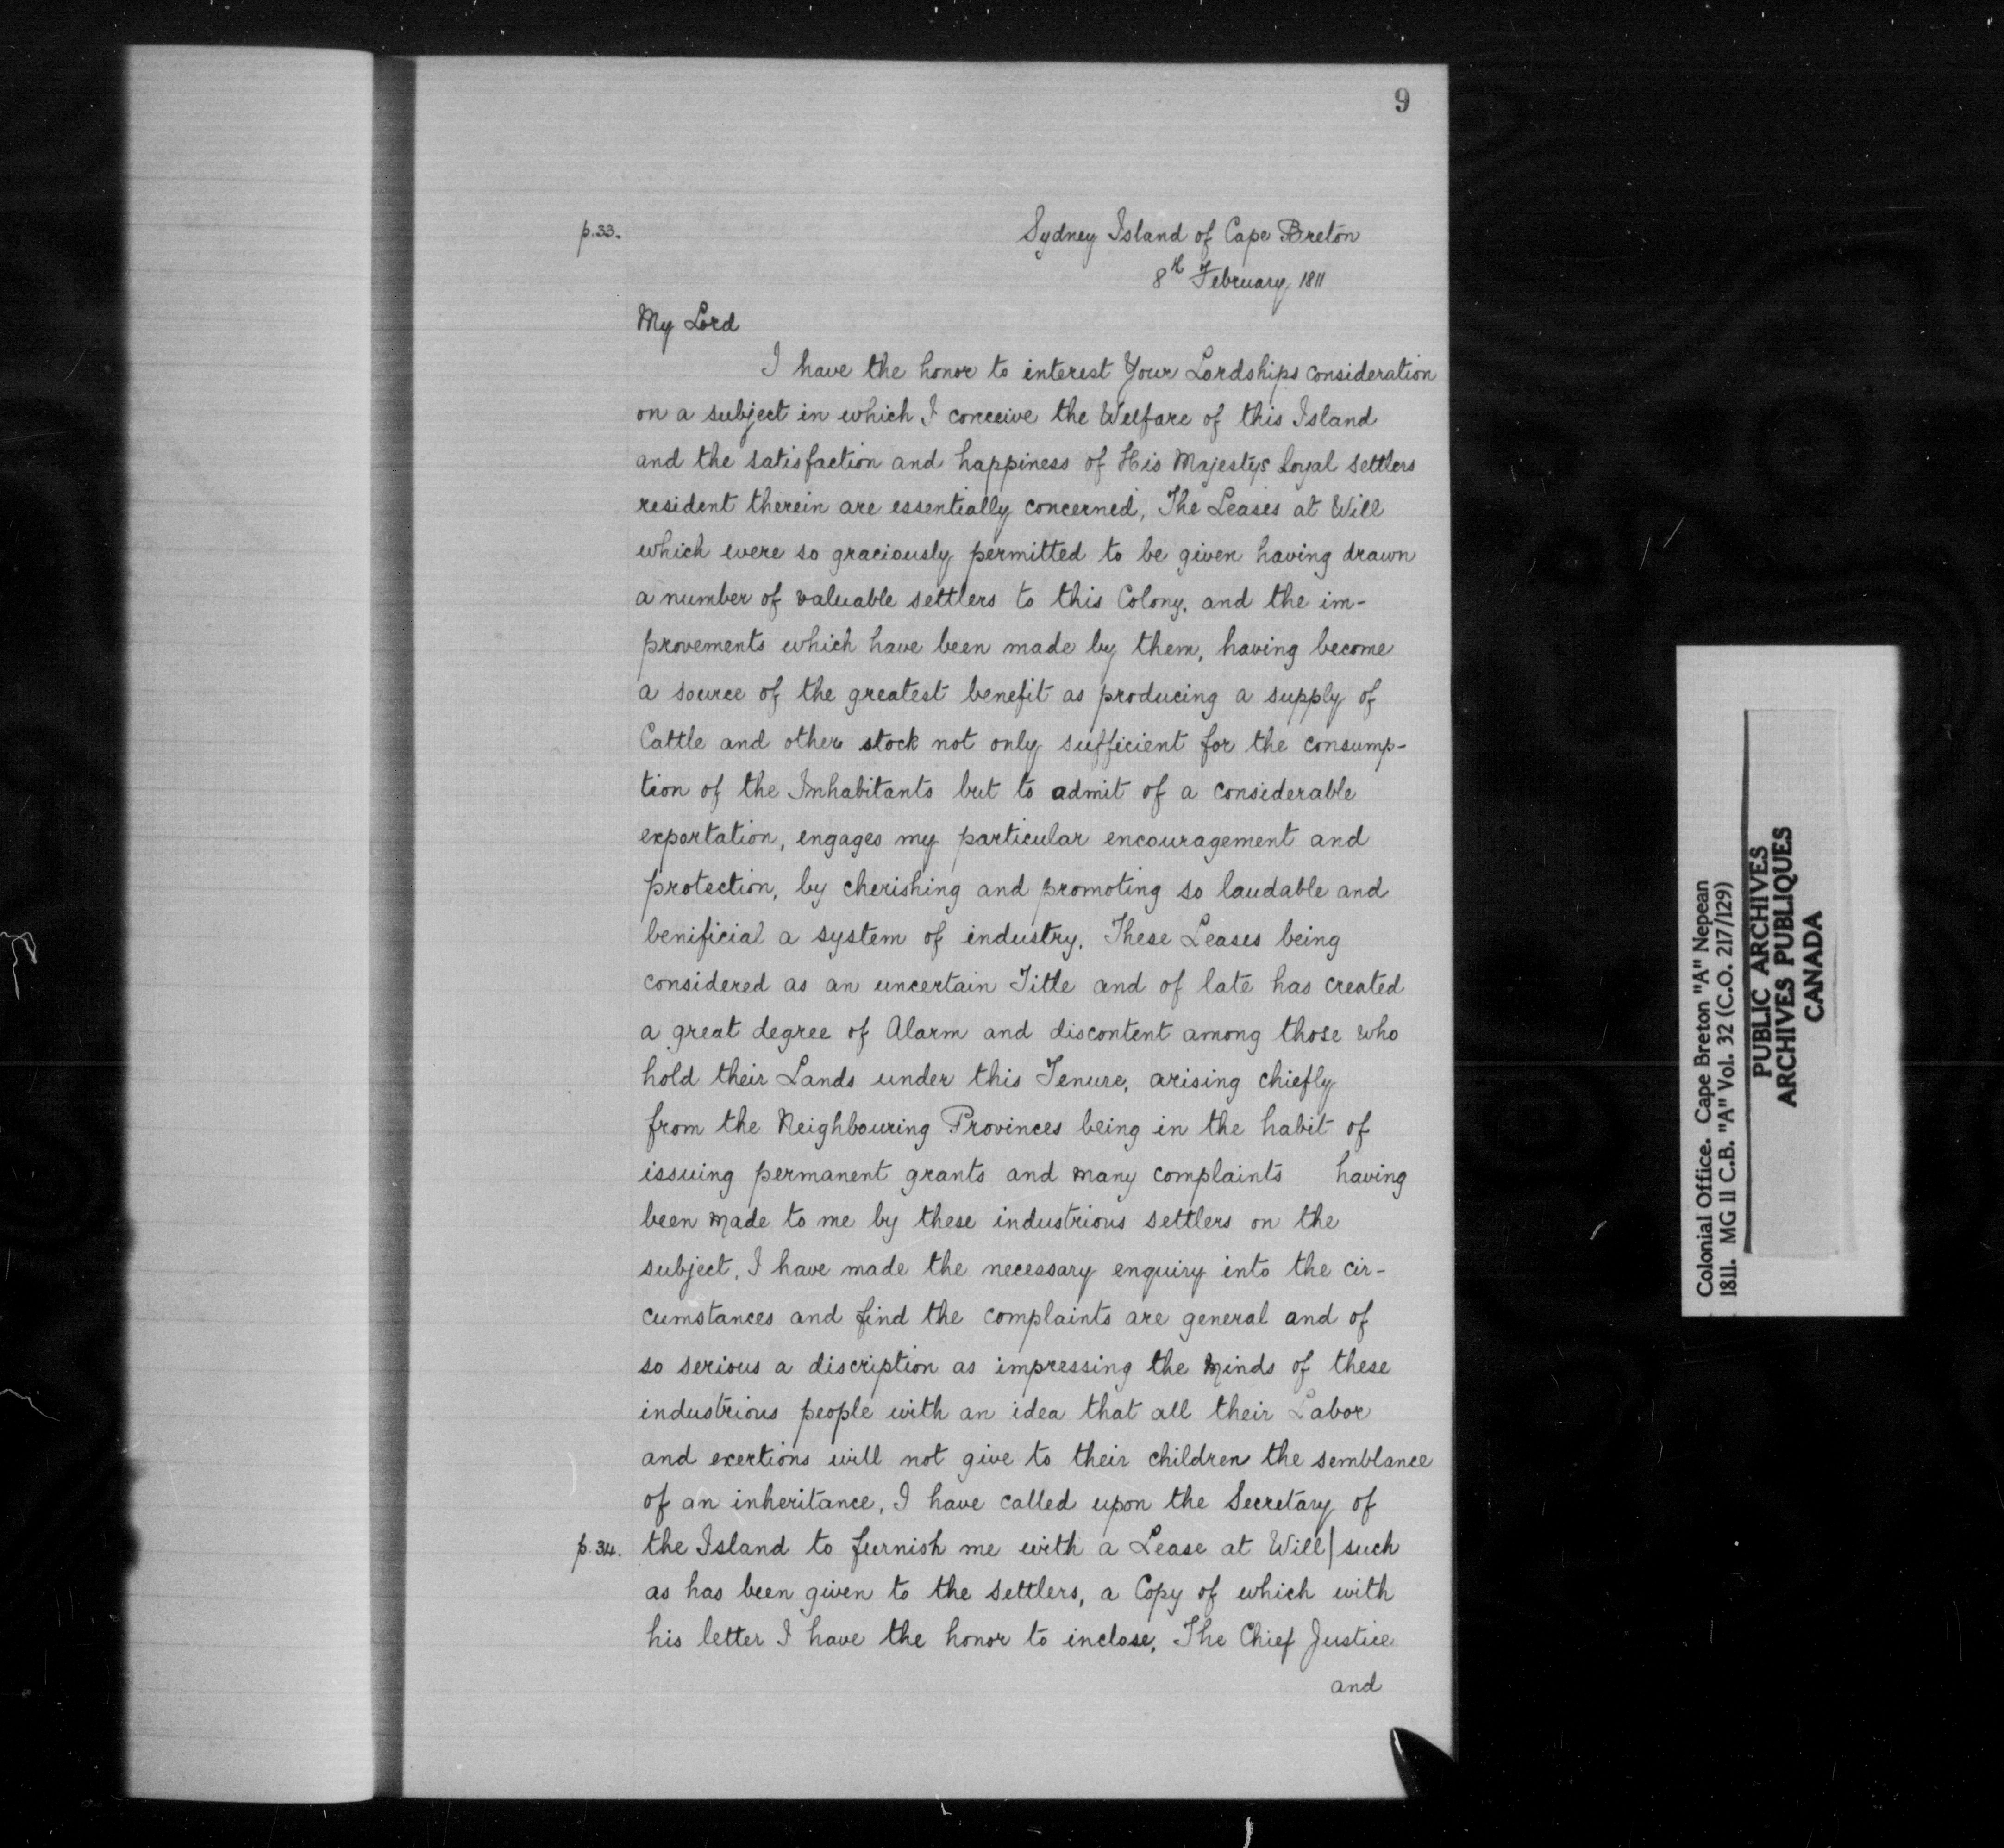 9
p.33.
Sydney Island of Cape Breton
8th February 1811
My Lord
I have the honor to interest Your Lordships consideration
on a subject in which I conceive the Welfare of this Island
and the satisfaction and happiness of His Majestys Loyal settlers
resident therein are essentially concerned, The Leases at Will
which were so graciously permitted to be given having drawn
a number of valuable settlers to this Colony, and the im-
provements which have been made by them, having become
a source of the greatest benefit as producing a supply of
Cattle and other stock not only sufficient for the consump-
tion of the Inhabitants but to admit of a considerable
exportation, engages my particular encouragement and
protection, by cherishing and promoting so laudable and
benificial a system of industry. These Leases being
considered as an uncertain Title and of late has created
a great degree of Alarm and discontent among those who
hold their Lands under this Tenure, arising chiefly
from the Neighbouring Provinces being in the habit of
issuing permanent grants and many complaints having
been made to me by these industrious settlers on the
subject, I have made the necessary enquiry into the cir-
cumstances and find the complaints are general and of
so serious a discription as impressing the minds of these
industrious people with an idea that all their Labor
and exertions will not give to their children the semblance
of an inheritance, I have called upon the Secretary of
p.34. the Island to furnish me with a Lease at Will | such
as has been given to the settlers, a Copy of which with
his letter I have the honor to inclose, The Chief Justice
and
Colonial Office. Cape Breton "A" Nepean
1811. MG 11 C.B. "A" Vol. 32 (C.O. 217/129)
PUBLIC ARCHIVES
ARCHIVES PUBLIQUES
CANADA